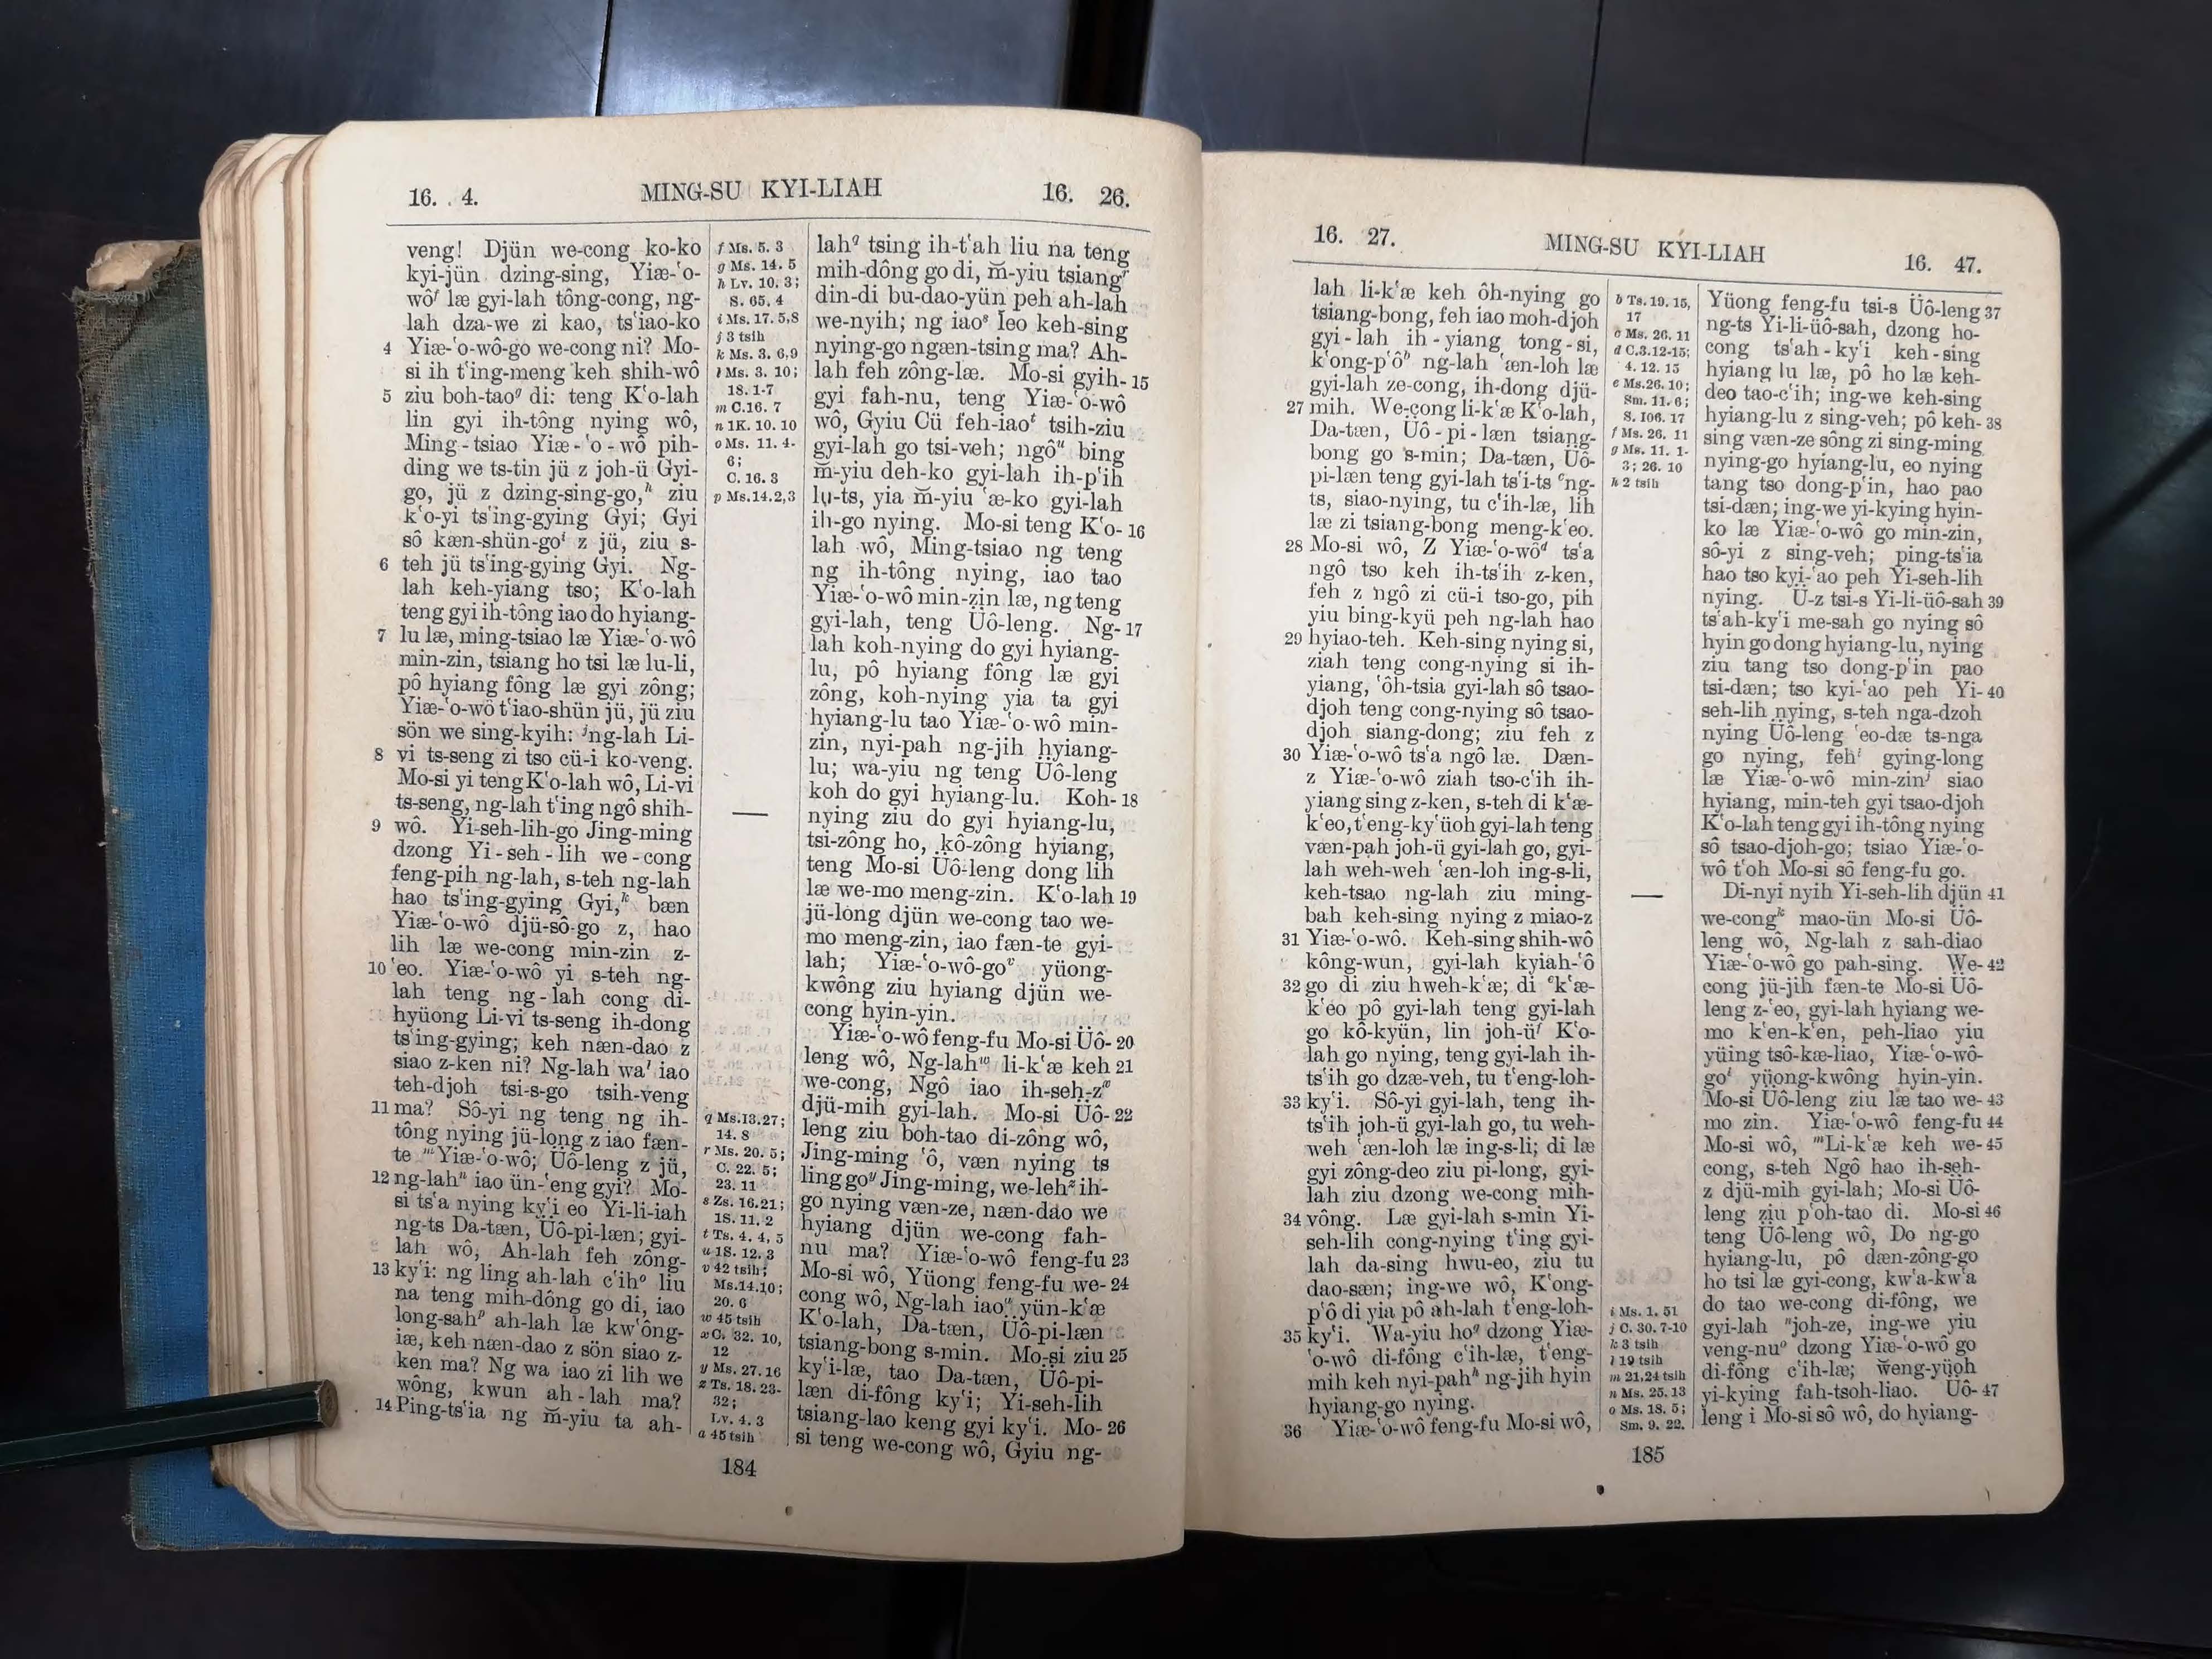 16. 4.
MING-SU KYI-LIAH
16. 26.
veng! Djün we-cong ko-ko
kyi-jün dzing-sing, Yiæ-‘o-
wôᶠ læ gyi-lah tông-cong, ng-
lah dza-we zi kao, ts‘iao-ko
4 Yiæ-‘o-wô-go we-cong ni? Mo-
si ih t‘ing-meng keh shih-wô
5 ziu boh-taoᵍ di: teng K‘o-lah
lin gyi ih-tông nying wô,
Ming-tsiao Yiæ-‘o-wô pih-
ding we ts-tin jü z joh-ü Gyi-
go, jü z dzing-sing-go,ʰ ziu
k‘o-yi ts‘ing-gying Gyi; Gyi
sô kæn-shün-goⁱ z jü, ziu s-
6 teh jü ts‘ing-gying Gyi. Ng-
lah keh-yiang tso; K‘o-lah
teng gyi ih-tông iao do hyiang-
7 lu læ, ming-tsiao læ Yiæ-‘o-wô
min-zin, tsiang ho tsi læ lu-li,
pô hyiang fông læ gyi zông;
Yiæ-‘o-wô t‘iao-shün jü, jü ziu
sön we sing-kyih: ʲng-lah Li-
8 vi ts-seng zi tso cü-i ko-veng.
Mo-si yi teng K‘o-lah wô, Li-vi
ts-seng, ng-lah t‘ing ngô shih-
9 wô. Yi-seh-lih-go Jing-ming
dzong Yi-seh-lih we-cong
feng-pih ng-lah, s-teh ng-lah
hao ts‘ing-gying Gyi,ᵏ bæn
Yiæ-‘o-wô djü-sô-go z, hao
lih læ we-cong min-zin z-
10 ‘eo. Yiæ-‘o-wô yi s-teh ng-
lah teng ng-lah cong di-
hyüong Li-vi ts-seng ih-dong
ts‘ing-gying; keh næn-dao z
siao z-ken ni? Ng-lah waˡ iao
teh-djoh tsi-s-go tsih-veng
11 ma? Sô-yi ng teng ng ih-
tông nying jü-long z iao fæn-
te ᵐYiæ-‘o-wô; Üô-leng z jü,
12 ng-lahⁿ iao ün-‘eng gyi? Mo-
si ts‘a nying ky‘i eo Yi-li-iah
ng-ts Da-tæn, Üô-pi-læn; gyi-
lah wô, Ah-lah feh zông-
13 ky‘i: ng ling ah-lah c‘ihᵒ liu
na teng mih-dông go di, iao
long-sahᵖ ah-lah læ kw‘ông-
iæ, keh næn-dao z sön siao z-
ken ma? Ng wa iao zi lih we
wông, kwun ah-lah ma?
14 Ping-ts‘ia ng m̆-yiu ta ah-
f Ms. 5. 3
g Ms. 14. 5
h Lv. 10. 3;
S. 65. 4
i Ms. 17. 5,8
j 3 tsih
k Ms. 3. 6,9
l Ms. 3. 10;
18. 1-7
m C. 16. 7
n 1K. 10. 10
o Ms. 11. 4-
6;
C. 16. 3
p Ms.14.2,3
—
q Ms.13.27;
14. 8
r Ms. 20. 5;
C. 22. 5;
23. 11
s Zs. 16.21;
1S. 11. 2
t Ts. 4. 4, 5
u 1S. 12. 3
v 42 tsih;
Ms.14.10;
20. 6
w 45 tsih
x C. 32. 10,
12
y Ms. 27. 16
z Ts. 18. 23-
32;
Lv. 4. 3
a 45 tsih
lahq tsing ih-t‘ah liu na teng
mih-dông go di, m̆-yiu tsiangʳ
din-di bu-dao-yün peh ah-lah
we-nyih; ng iaoˢ leo keh-sing
nying-go ngæn-tsing ma? Ah-
lah feh zông-læ. Mo-si gyih- 15
gyi fah-nu, teng Yiæ-‘o-wô
wô, Gyiu Cü feh-iaoᵗ tsih-ziu
gyi-lah go tsi-veh; ngôᵘ bing
m̆-yiu deh-ko gyi-lah ih-p‘ih
lụ-ts, yia m̆-yiu ‘æ-ko gyi-lah
ih-go nying. Mo-si teng K‘o- 16
lah wô, Ming-tsiao ng teng
ng ih-tông nying, iao tao
Yiæ-‘o-wô min-zin læ, ng teng
gyi-lah, teng Üô-leng. Ng- 17
lah koh-nying do gyi hyiang-
lu, pô hyiang fông læ gyi
zông, koh-nying yia ta gyi
hyiang-lu tao Yiæ-‘o-wô min-
zin, nyi-pah ng-jih hyiang-
lu; wa-yiu ng teng Üô-leng
koh do gyi hyiang-lu. Koh- 18
nying ziu do gyi hyiang-lu,
tsi-zông ho, kô-zông hyiang,
teng Mo-si Üô-leng dong lih
læ we-mo meng-zin. K‘o-lah 19
jü-long djün we-cong tao we-
mo meng-zin, iao fæn-te gyi-
lah; Yiæ-‘o-wô-goᵛ yüong-
kwông ziu hyiang djün we-
cong hyin-yin.
Yiæ-‘o-wô feng-fu Mo-si Üô- 20
leng wô, Ng-lahʷ li-k‘æ keh 21
we-cong, Ngô iao ih-seh-zˣ
djü-mih gyi-lah. Mo-si Üô- 22
leng ziu boh-tao di-zông wô,
Jing-ming ‘ô, væn nying ts
ling goʸ Jing-ming, we-lehᶻ ih-
go nying væn-ze, næn-dao we
hyiang djün we-cong fah-
nu ma? Yiæ-‘o-wô feng-fu 23
Mo-si wô, Yüong feng-fu we- 24
cong wô, Ng-lah iaoᵃ yün-k‘æ
K‘o-lah, Da-tæn, Üô-pi-læn
tsiang-bong s-min. Mo-si ziu 25
ky‘i-læ, tao Da-tæn, Üô-pi-
læn di-fông ky‘i; Yi-seh-lih
tsiang-lao keng gyi ky‘i. Mo- 26
si teng we-cong wô, Gyiu ng-
184
16. 27.
MING-SU KYI-LIAH
16. 47.
lah li-k‘æ keh ôh-nying go
tsiang-bong, feh iao moh-djoh
gyi-lah ih-yiang tong-si,
k‘ong-p‘ôᵇ ng-lah ‘æn-loh læ
gyi-lah ze-cong, ih-dong djü-
27 mih. We-cong li-k‘æ K‘o-lah,
Da-tæn, Üô-pi-læn tsiang-
bong go s-min; Da-tæn, Üô-
pi-læn teng gyi-lah ts‘i-ts ᶜng-
ts, siao-nying, tu c‘ih-læ, lih
læ zi tsiang-bong meng-k‘eo.
28 Mo-si wô, Z Yiæ-‘o-wôᵈ ts‘a
ngô tso keh ih-ts‘ih z-ken,
feh z ngô zi cü-i tso-go, pih
yiu bing-kyü peh ng-lah hao
29 hyiao-teh. Keh-sing nying si,
ziah teng cong-nying si ih-
yiang, ‘ôh-tsia gyi-lah sô tsao-
djoh teng cong-nying sô tsao-
djoh siang-dong; ziu feh z
30 Yiæ-‘o-wô ts‘a ngô læ. Dæn-
z Yiæ-‘o-wô ziah tso-c‘ih ih-
yiang sing z-ken, s-teh di k‘æ-
k‘eo, t‘eng-ky‘üoh gyi-lah teng
væn-pah joh-ü gyi-lah go, gyi-
lah weh-weh ‘æn-loh ing-s-li,
keh-tsao ng-lah ziu ming-
bah keh-sing nying z miao-z
31 Yiæ-‘o-wô. Keh-sing shih-wô
kông-wun, gyi-lah kyiah-‘ô
32 go di ziu hweh-k‘æ; di ᵉk‘æ-
k‘eo pô gyi-lah teng gyi-lah
go kô-kyün, lin joh-üᶠ K‘o-
lah go nying, teng gyi-lah ih-
ts‘ih go dzæ-veh, tu t‘eng-loh-
33 ky‘i. Sô-yi gyi-lah, teng ih-
ts‘ih joh-ü gyi-lah go, tu weh-
weh ‘æn-loh læ ing-s-li; di læ
gyi zông-deo ziu pi-long, gyi-
lah ziu dzong we-cong mih-
34 vông. Læ gyi-lah s-min Yi-
seh-lih cong-nying t‘ing gyi-
lah da-sing hwu-eo, ziu tu
dao-sæn; ing-we wô, K‘ong-
p‘ô di yia pô ah-lah t‘eng-loh-
35 ky‘i. Wa-yiu hoᵍ dzong Yiæ-
‘o-wô di-fông c‘ih-læ, t‘eng-
mih keh nyi-pahʰ ng-jih hyin
hyiang-go nying.
36 Yiæ-‘o-wô feng-fu Mo-si wô,
b Ts. 19. 15,
17
c Ms. 26. 11
d C.3.12-15;
4. 12. 15
e Ms.26. 10;
Sm. 11. 6;
S. 106. 17
f Ms. 26. 11
g Ms. 11. 1-
3; 26. 10
h 2 tsih
—
i Ms. 1. 51
j C. 30. 7-10
k 3 tsih
l 19 tsih
m 21,24 tsih
n Ms. 25. 13
o Ms. 18. 5;
Sm. 9. 22.
Yüong feng-fu tsi-s Üô-leng 37
ng-ts Yi-li-üô-sah, dzong ho-
cong ts‘ah-ky‘i keh-sing
hyiang lu læ, pô ho læ keh-
deo tao-c‘ih; ing-we keh-sing
hyiang-lu z sing-veh; pô keh- 38
sing væn-ze sông zi sing-ming
nying-go hyiang-lu, eo nying
tang tso dong-p‘in, hao pao
tsi-dæn; ing-we yi-kying hyin-
ko læ Yiæ-‘o-wô go min-zin,
sô-yi z sing-veh; ping-ts‘ia
hao tso kyi-‘ao peh Yi-seh-lih
nying. Ü-z tsi-s Yi-li-üô-sah 39
ts‘ah-ky‘i me-sah go nying sô
hyin go dong hyiang-lu, nying
ziu tang tso dong-p‘in pao
tsi-dæn; tso kyi-‘ao peh Yi- 40
seh-lih nying, s-teh nga-dzoh
nying Üô-leng ‘eo-dæ ts-nga
go nying, fehⁱ gying-long
læ Yiæ-‘o-wô min-zinʲ siao
hyiang, min-teh gyi tsao-djoh
K‘o-lah teng gyi ih-tông nying
sô tsao-djoh-go; tsiao Yiæ-‘o-
wô t‘oh Mo-si sô feng-fu go.
Di-nyi nyih Yi-seh-lih djün 41
we-congᵏ mao-ün Mo-si Üô-
leng wô, Ng-lah z sah-diao
Yiæ-‘o-wô go pah-sing. We- 42
cong jü-jih fæn-te Mo-si Üô-
leng z-‘eo, gyi-lah hyiang we-
mo k‘en-k‘en, peh-liao yiu
yüing tsô-kæ-liao, Yiæ-‘o-wô-
goˡ yüong-kwông hyin-yin.
Mo-si Üô-leng ziu læ tao we- 43
mo zin. Yiæ-‘o-wô feng-fu 44
Mo-si wô, ᵐLi-k‘æ keh we- 45
cong, s-teh Ngô hao ih-seh-
z djü-mih gyi-lah; Mo-si Üô-
leng ziu p‘oh-tao di. Mo-si 46
teng Üô-leng wô, Do ng-go
hyiang-lu, pô dæn-zông-go
ho tsi læ gyi-cong, kw‘a-kw‘a
do tao we-cong di-fông, we
gyi-lah ⁿjoh-ze, ing-we yiu
veng-nuᵒ dzong Yiæ-‘o-wô go
di-fông c‘ih-læ; weng-yüoh
yi-kying fah-tsoh-liao. Üô- 47
leng i Mo-si sô wô, do hyiang-
185